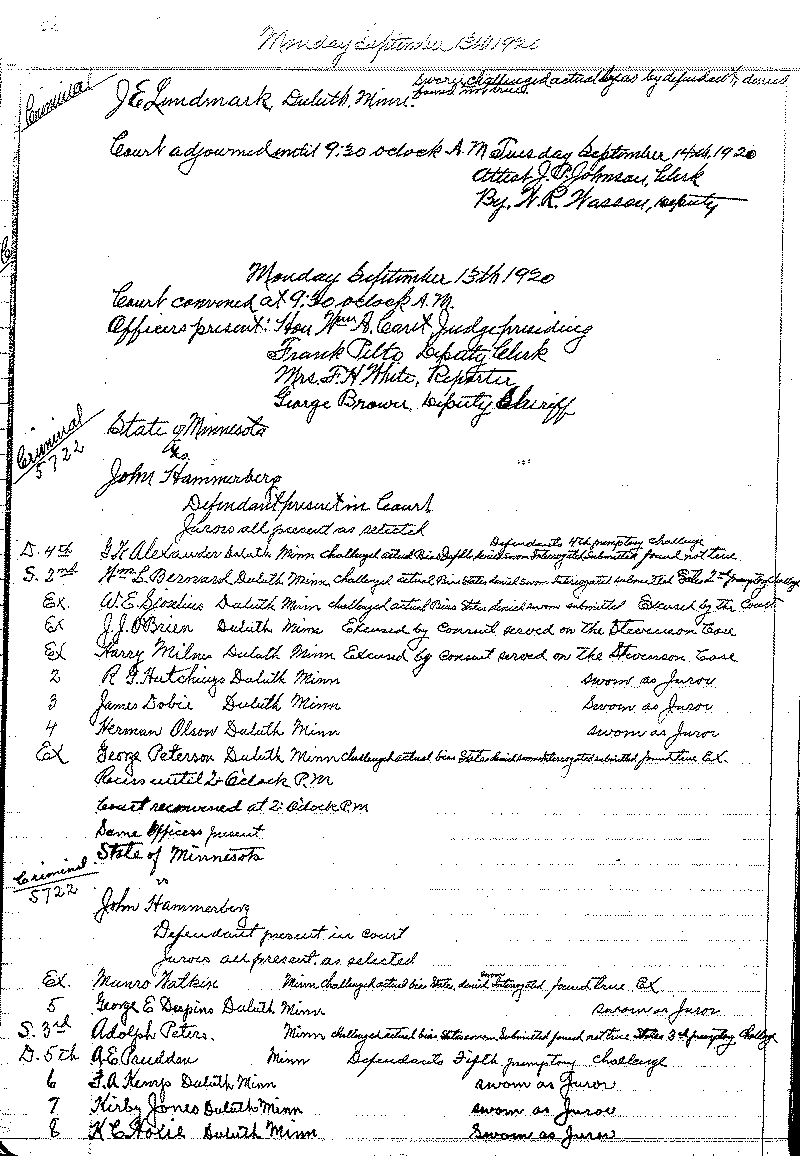 Monday September 13th 1920
Criminal
J E Lundmark, Duluth, Minn. sworn challenged actual bias by defendant, denied found not true
Court adjourned until 9:30 oclock A.M Tuesday September 14th, 1920
Attest J. P. Johnson, Clerk
By, W. R. Wasson, Deputy
Monday September 13th 1920
Court convened at 9:30 oclock A.M.
Officers present: Hon Wm A. Cant Judge presiding
Frank Deputy Clerk
Mrs. F. H White, Reporter
George Brown, Deputy Sheriff
Criminal
5722
State of Minnesota
vs.
John Hammerberg
Defendant present in Court
Jurors all present as selected
Defendants 4th premptory challenge
D. 4th Alexander Duluth Minn challenged actual Bias Defts denied sworn Interrogated submitted found not true
S. 2nd Wm L Bernard Duluth Minn challenged actual Bias States denied sworn Interrogated submitted States 2nd premptory challenge
Ex. W. E. Duluth Minn challenged actual Bias States denied sworn submitted Excused by the Court
Ex J. J. O'Brien Duluth Minn Excused by consent served on the Stevenson Case
Ex Harry Milnes Duluth Minn Excused by consent served on the Stevenson Case
2 R Hutchings Duluth Minn sworn as Juror
3 James Dobie Duluth Minn sworn as Juror
4 Herman Olson Duluth Minn sworn as Juror
Ex George Peterson Duluth Minn challenged actual bias States denied sworn Interrogated submitted found true Ex.
Recess until 2 O'clock P.M
Court reconvened at 2 O'clock P.M
Same Officers present
State of Minnesota
Criminal
5722
vs
John Hammerberg
Defendant present in court
Jurors all present as selected
Ex. Munro Minn challenged actual bias States denied sworn Interrogated found true Ex
5 George E Duluth Minn sworn as Juror
S. 3rd Adolph Peters. Minn challenged actual bias States sworn Submitted found not true States 3rd premptory Challenge
D. 5th A. E. Minn Defendants Fifth premptory challenge
6 F. A Kemp Duluth Minn sworn as Juror
7 Kirby Jones Duluth Minn sworn as Juror
8 K C Duluth Minn Sworn as Juror